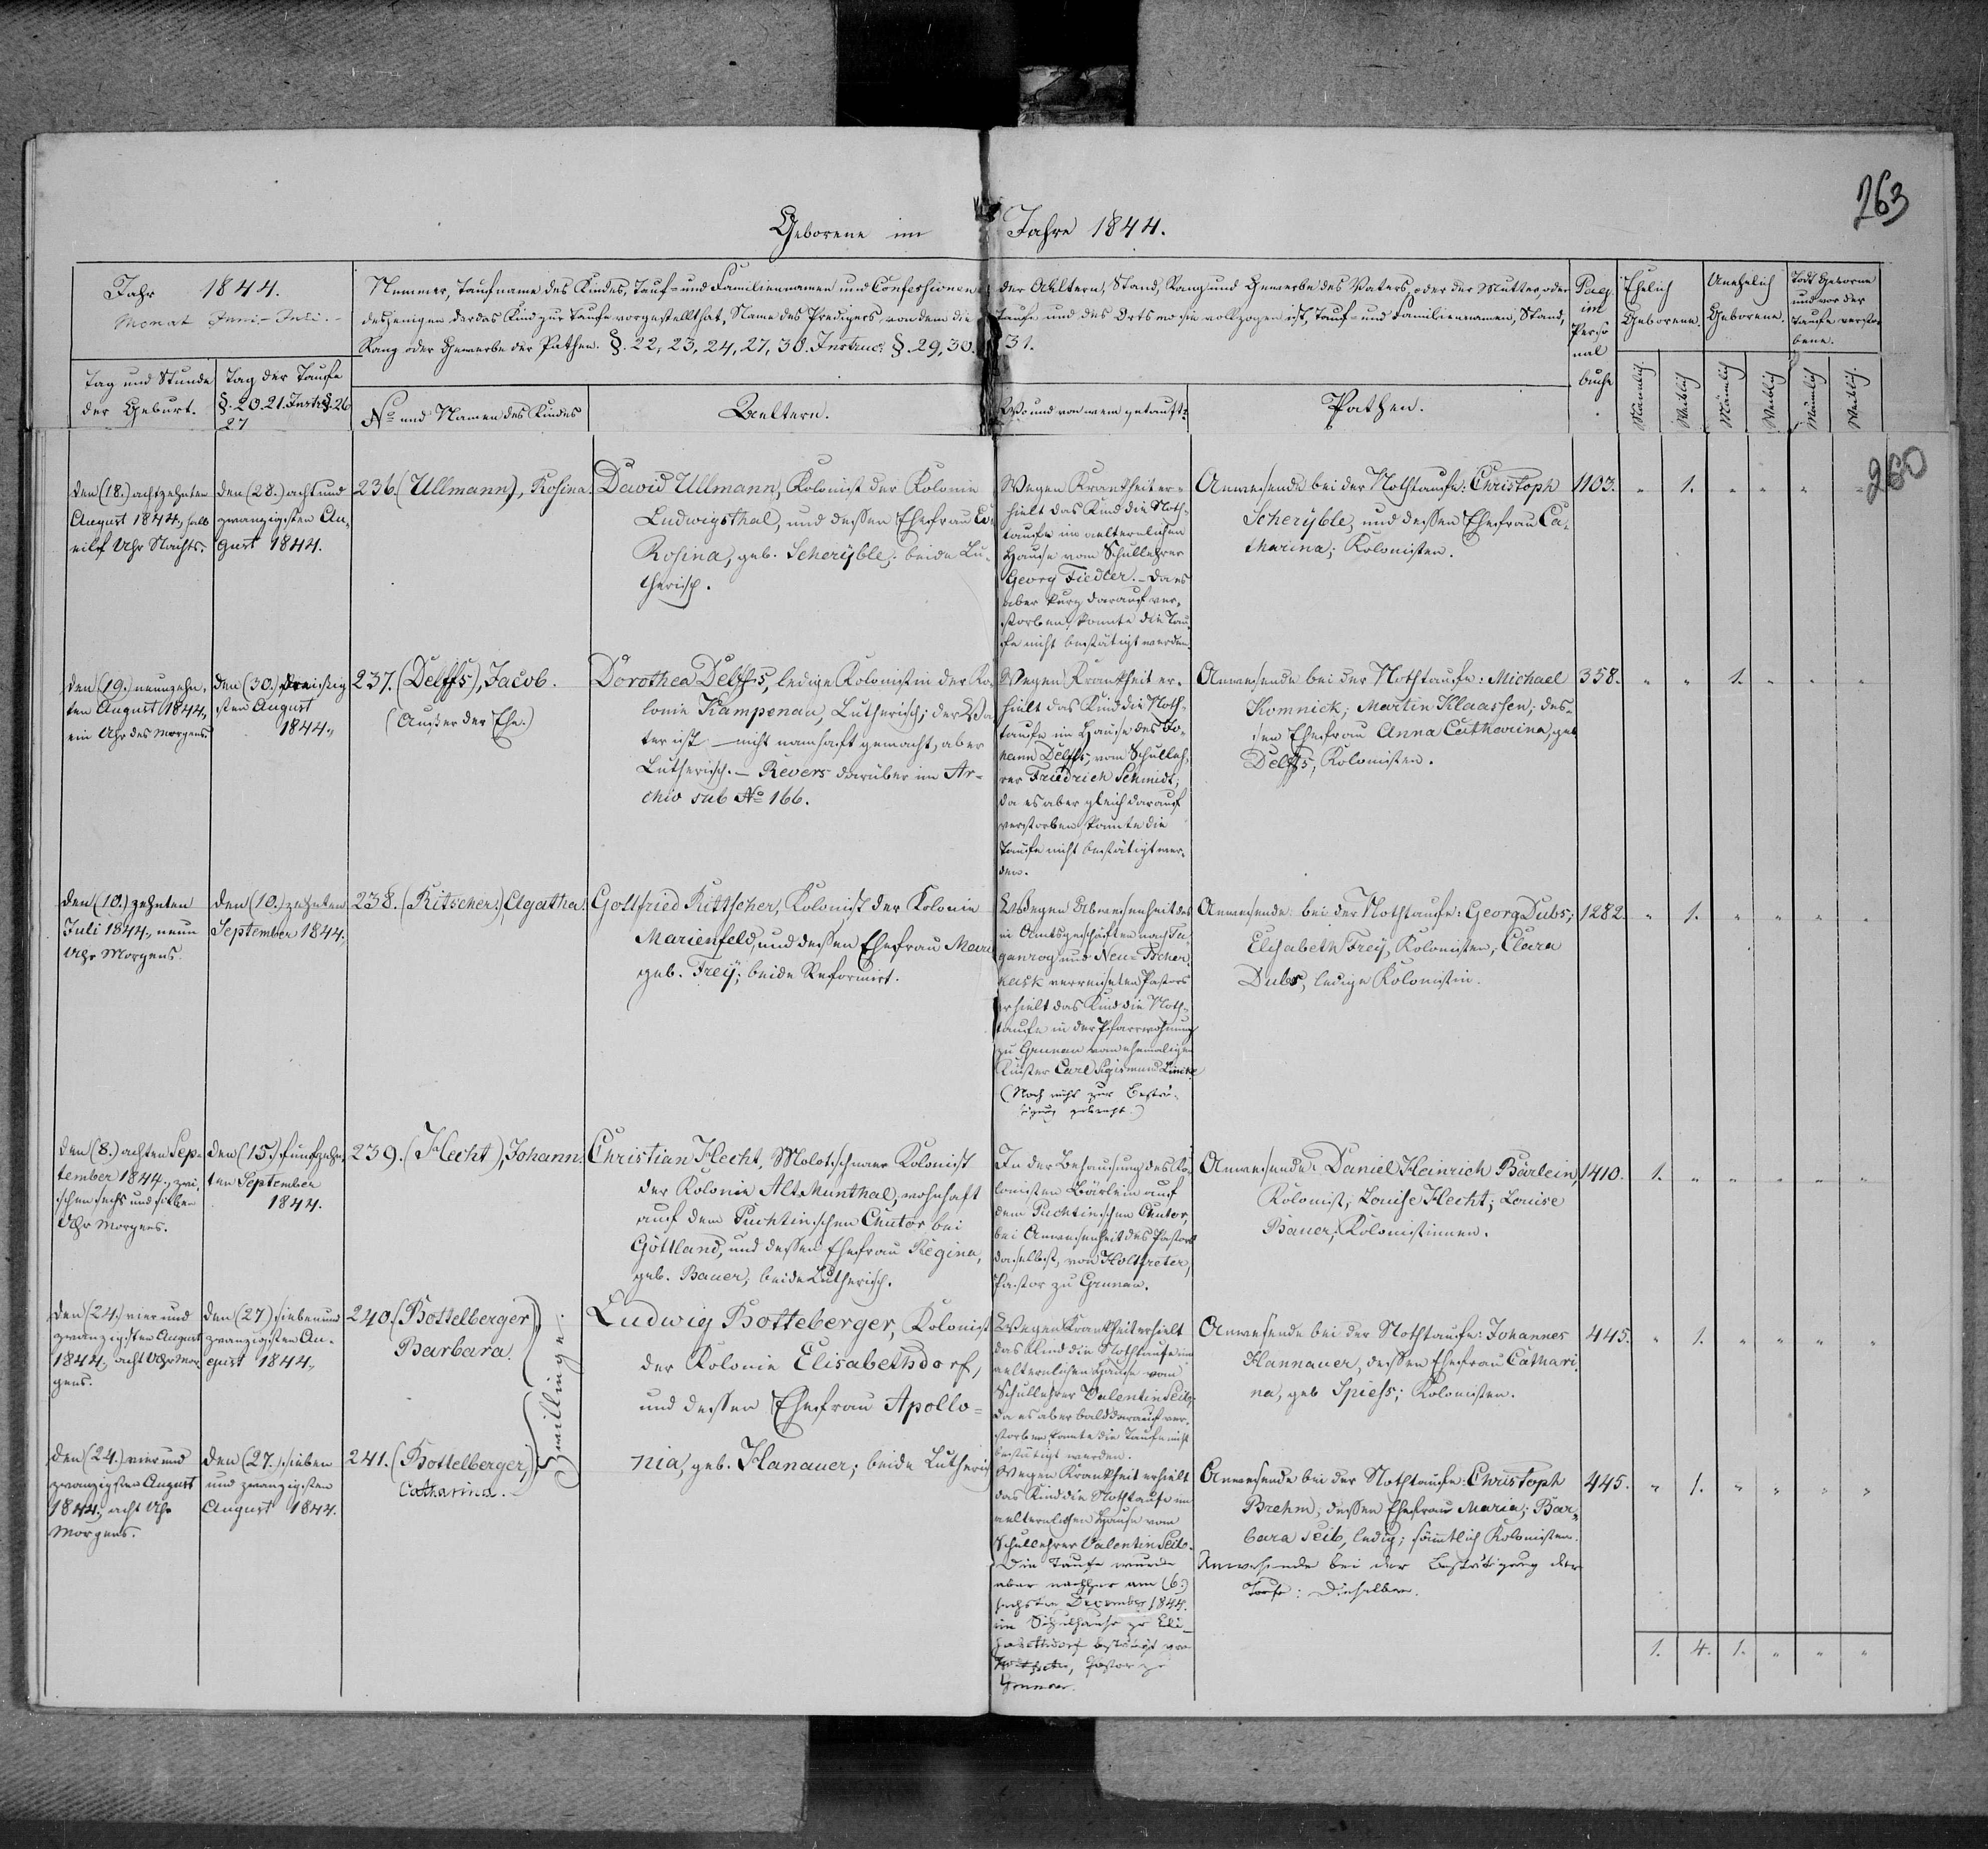 263
Geborene im Jahre 1844.
Jahr 1844.
Monat Juni-Juli.-
Nummer, Taufname des Kindes, Tauf- und Familiennamen und Confessionen der Aeltern, Stand, Rang und Gewerbe des Vaters, oder der Mutter, oder
desjenigen der das Kind zur Taufe vorgestellt hat, Name des Predigers, von dem die Taufe und des Orts wo sie vollzogen ist, Tauf- und Familiennamen, Stand,
Rang oder Gewerbe der Pathen. §. 22, 23, 24, 27, 30. Instruc: §. 29, 30. 31.
Pag.
im
Perso
nal
buche
Ehelich
Geborene.
Unehelich
Geborene.
Todt Geborne
und vor der
Taufe versto-
bene.
Tag und Stunde
der Geburt.
Tag der Taufe
§. 20. 21. Instr. §. 26
27
No und Namen des Kindes
Aeltern.
Wo und von wem getauft?
Pathen.
Männlich
Weiblich
Männlich
Weiblich
Männlich
Weiblich.
260
den (18.) achtzehnten
August 1844., halb
eilf Uhr Nachts.
den (28.) acht und
zwanzigsten Au-
gust 1844.
236. (Ullmann), Rosina
David Ullmann, Kolonist der Kolonie
Ludwigsthal, und dessen Ehefrau Eva
Rosina, geb. Scherÿble; beide Lu-
therisch.
Wegen Krankheit er-
hielt das Kind die Noth-
taufe im aelterlichen
Hause vom Schullehrer
Georg Fiedler. - Da es
aber kurz darauf ver-
storben, konnte die Tau-
fe nicht bestätigt werden.
Anwesende bei der Nothtaufe: Christoph
Scherÿble, und dessen Ehefrau Ca-
tharina; Kolonisten.
1103. " 1. " " " "
den (19.) neunzehn-
ten August 1844.,
ein Uhr des Morgens.
den (30.) dreißig
sten August
1844.,
237. (Delffs), Jacob.
(Außer der Ehe.)
Dorothea Delffs, ledige Kolonistin der Ko-
lonie Kampenau, Lutherisch; der Va-
ter ist - nicht namhaft gemacht, aber
Lutherisch. - Revers darüber im Ar-
chiv sub No 166.
Wegen Krankheit er-
hielt das Kind die Noth-
taufe im Hause des Jo-
hann Delffs, vom Schulleh-
rer Friedrich Schmidt;
da es aber gleich darauf
verstorben konnte die
Taufe nicht bestätigt wer-
den.
Anwesende bei der Nothtaufe: Michael
Komnick; Martin Klaassen; des-
sen Ehefrau Anna Catharina, geb
Delffs; Kolonisten.
358. " " 1. " " "
den (10.) zehnten
Juli 1844., neun
Uhr Morgens.
den (10.) zehnten
September 1844.
238. (Ritscher), Agatha.
Gottfried Rittscher, Kolonist der Kolonie
Marienfeld, und dessen Ehefrau Maria
geb. Freÿ; beide Reformirt.
Wegen Abwesenheit des
in Amtsgeschäften nach Ta-
ganrog und Neu-Tscher-
kask verreiseten Pastors
erhielt das Kind die Noth-
taufe in der Pfarrwohnung
zu Grunau vom ehemaligen
Küster Carl Sigismund
(Noch nicht zur Bestä-
tigung gebracht.)
Anwesende bei der Nothtaufe: Georg Dubs;
Elisabeth Freÿ, Kolonisten; Clara
Dubs, ledige Kolonistin.
1282. " 1. " " " "
den (8.) achten Sep-
tember 1844., zwi-
schen sechs und sieben
Uhr Morgens.
den (15.) fünfzehn-
ten September
1844.
239. (Hecht), Johann.
Christian Hecht, Molotschnaer Kolonist
der Kolonie Alt Munthal, wohnhaft
auf dem Puchtinschen Chutor bei
Göttland, und dessen Ehefrau Regina,
geb. Bauer; beide Lutherisch.
In der Behausung des Ko-
lonisten Bärlein auf
dem Puchtinschen Chutor,
bei Anwesenheit des Pastors
daselbst, von Holtfreter,
Pastor zu Grunau.
Anwesende: Daniel Heinrich Bärlein,
Kolonist; Louise Hecht; Louise
Bauer, Kolonistinnen.
1410. 1. " " " " "
den (24.) vier und
zwanzigsten August
1844., acht Uhr Mor
gens.
den (27) sieben und
zwanzigsten Au-
gust 1844.,
240. (Bottelberger),
Barbara.
Zwillinge.
Ludwig Botteberger, Kolonist
der Kolonie Elisabethdorf,
und dessen Ehefrau Apollo-
nia, geb. Hanauer; beide Lutherisch
Wegen Krankheit erhielt
das Kind die Nothtaufe im
aelterlichen Hause vom
Schullehrer Valentin Seib;
da es aber bald darauf ver-
storben konnte die Taufe nicht
bestätigt werden.
Anwesende bei der Nothtaufe: Johannes
Hannauer, dessen Ehefrau Cathari
na, geb Spiess; Kolonisten.
445. " 1. " " " "
den (24.) vier und
zwanzigsten August
1844., acht Uhr
Morgens.
den (27.) sieben
und zwanzigsten
August 1844.
241. (Bottelberger),
Catharina.
Wegen Krankheit erhielt
das Kind die Nothtaufe im
aelterlichen Hause vom
Schullehrer Valentin Seib.
Die Taufe wurde
aber nachher am (6.)
sechsten December 1844.
im Schulhause zu Eli-
sabethdorf bestätigt von
Holtfreter, Pastor zu
Grunau.
Anwesende bei der Nothtaufe: Christoph
Brehm; dessen Ehefrau Maria; Bar-
bara Seib, ledig; sämtlich Kolonisten.
Anwesende bei der Bestätigung der
Taufe: Dieselben.
445. " 1. " " " "
1. 4. 1. " " "